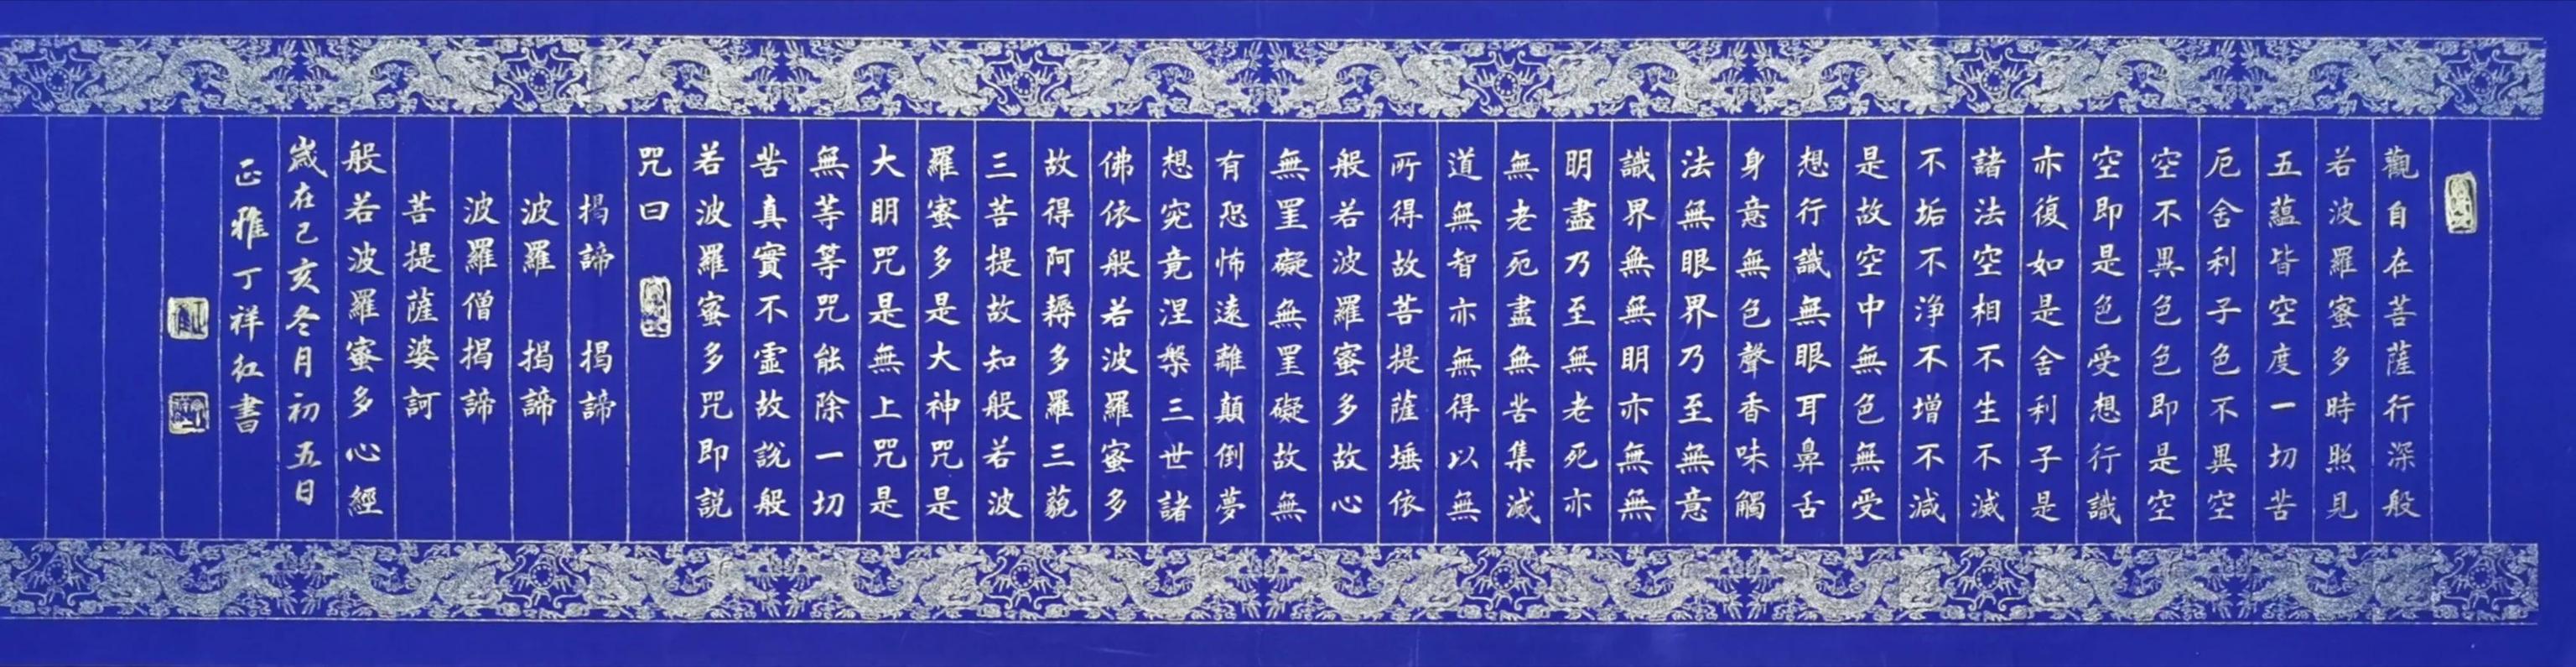 觀自在菩薩行深般
若波羅蜜多時照見
五蘊皆空度一切苦
厄舍利子色不異空
空不異色色即是空
空即是色受想行識
亦復如是舍利子是
諸法空相不生不滅
不垢不淨不增不減
是故空中無色無受
想行識無眼耳鼻舌
身意無色聲香味觸
法無眼界乃至無意
識界無無明亦無無
明盡乃至無老死亦
無老死盡無苦集滅
道無智亦無得以無
所得故菩提薩埵依
般若波羅蜜多故心
無罣礙無罣礙故無
有恐怖遠離顛倒夢
想究竟涅槃三世諸
佛依般若波羅蜜多
故得阿耨多羅三藐
三菩提故知般若波
羅蜜多是大神咒是
大明咒是無上咒是
無等等咒能除一切
苦真實不虛故說般
若波羅蜜多咒即說
咒曰
揭諦 揭諦
波羅 揭諦
波羅僧揭諦
菩提薩婆訶
般若波羅蜜多心經
歲在己亥冬月初五日
正雅丁祥红書